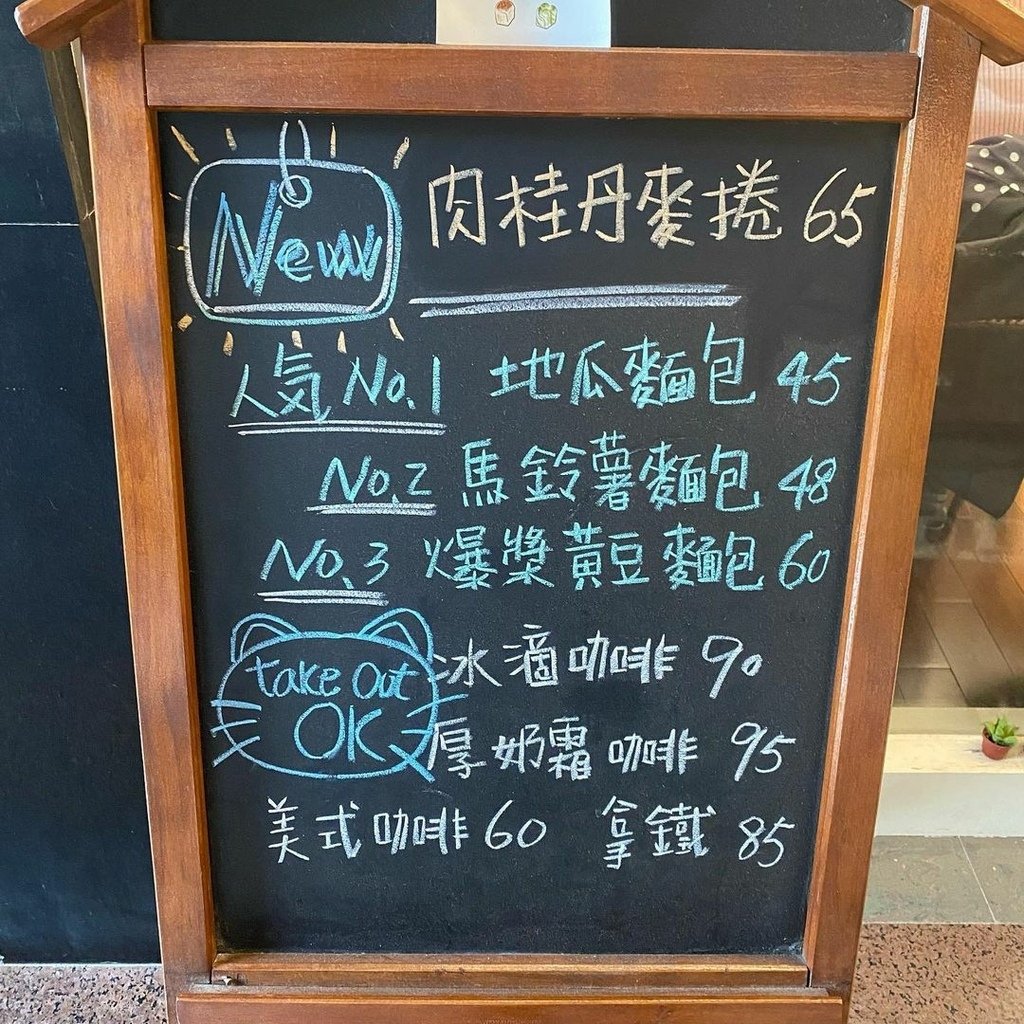 New 肉桂丹麥捲 65
人気 No.1 地瓜麵包 45
No.2 馬鈴薯麵包 48
No.3 爆漿黃豆麵包 60
Take Out OK
冰滴咖啡 90
厚奶霜咖啡 95
美式咖啡 60 拿鐵 85